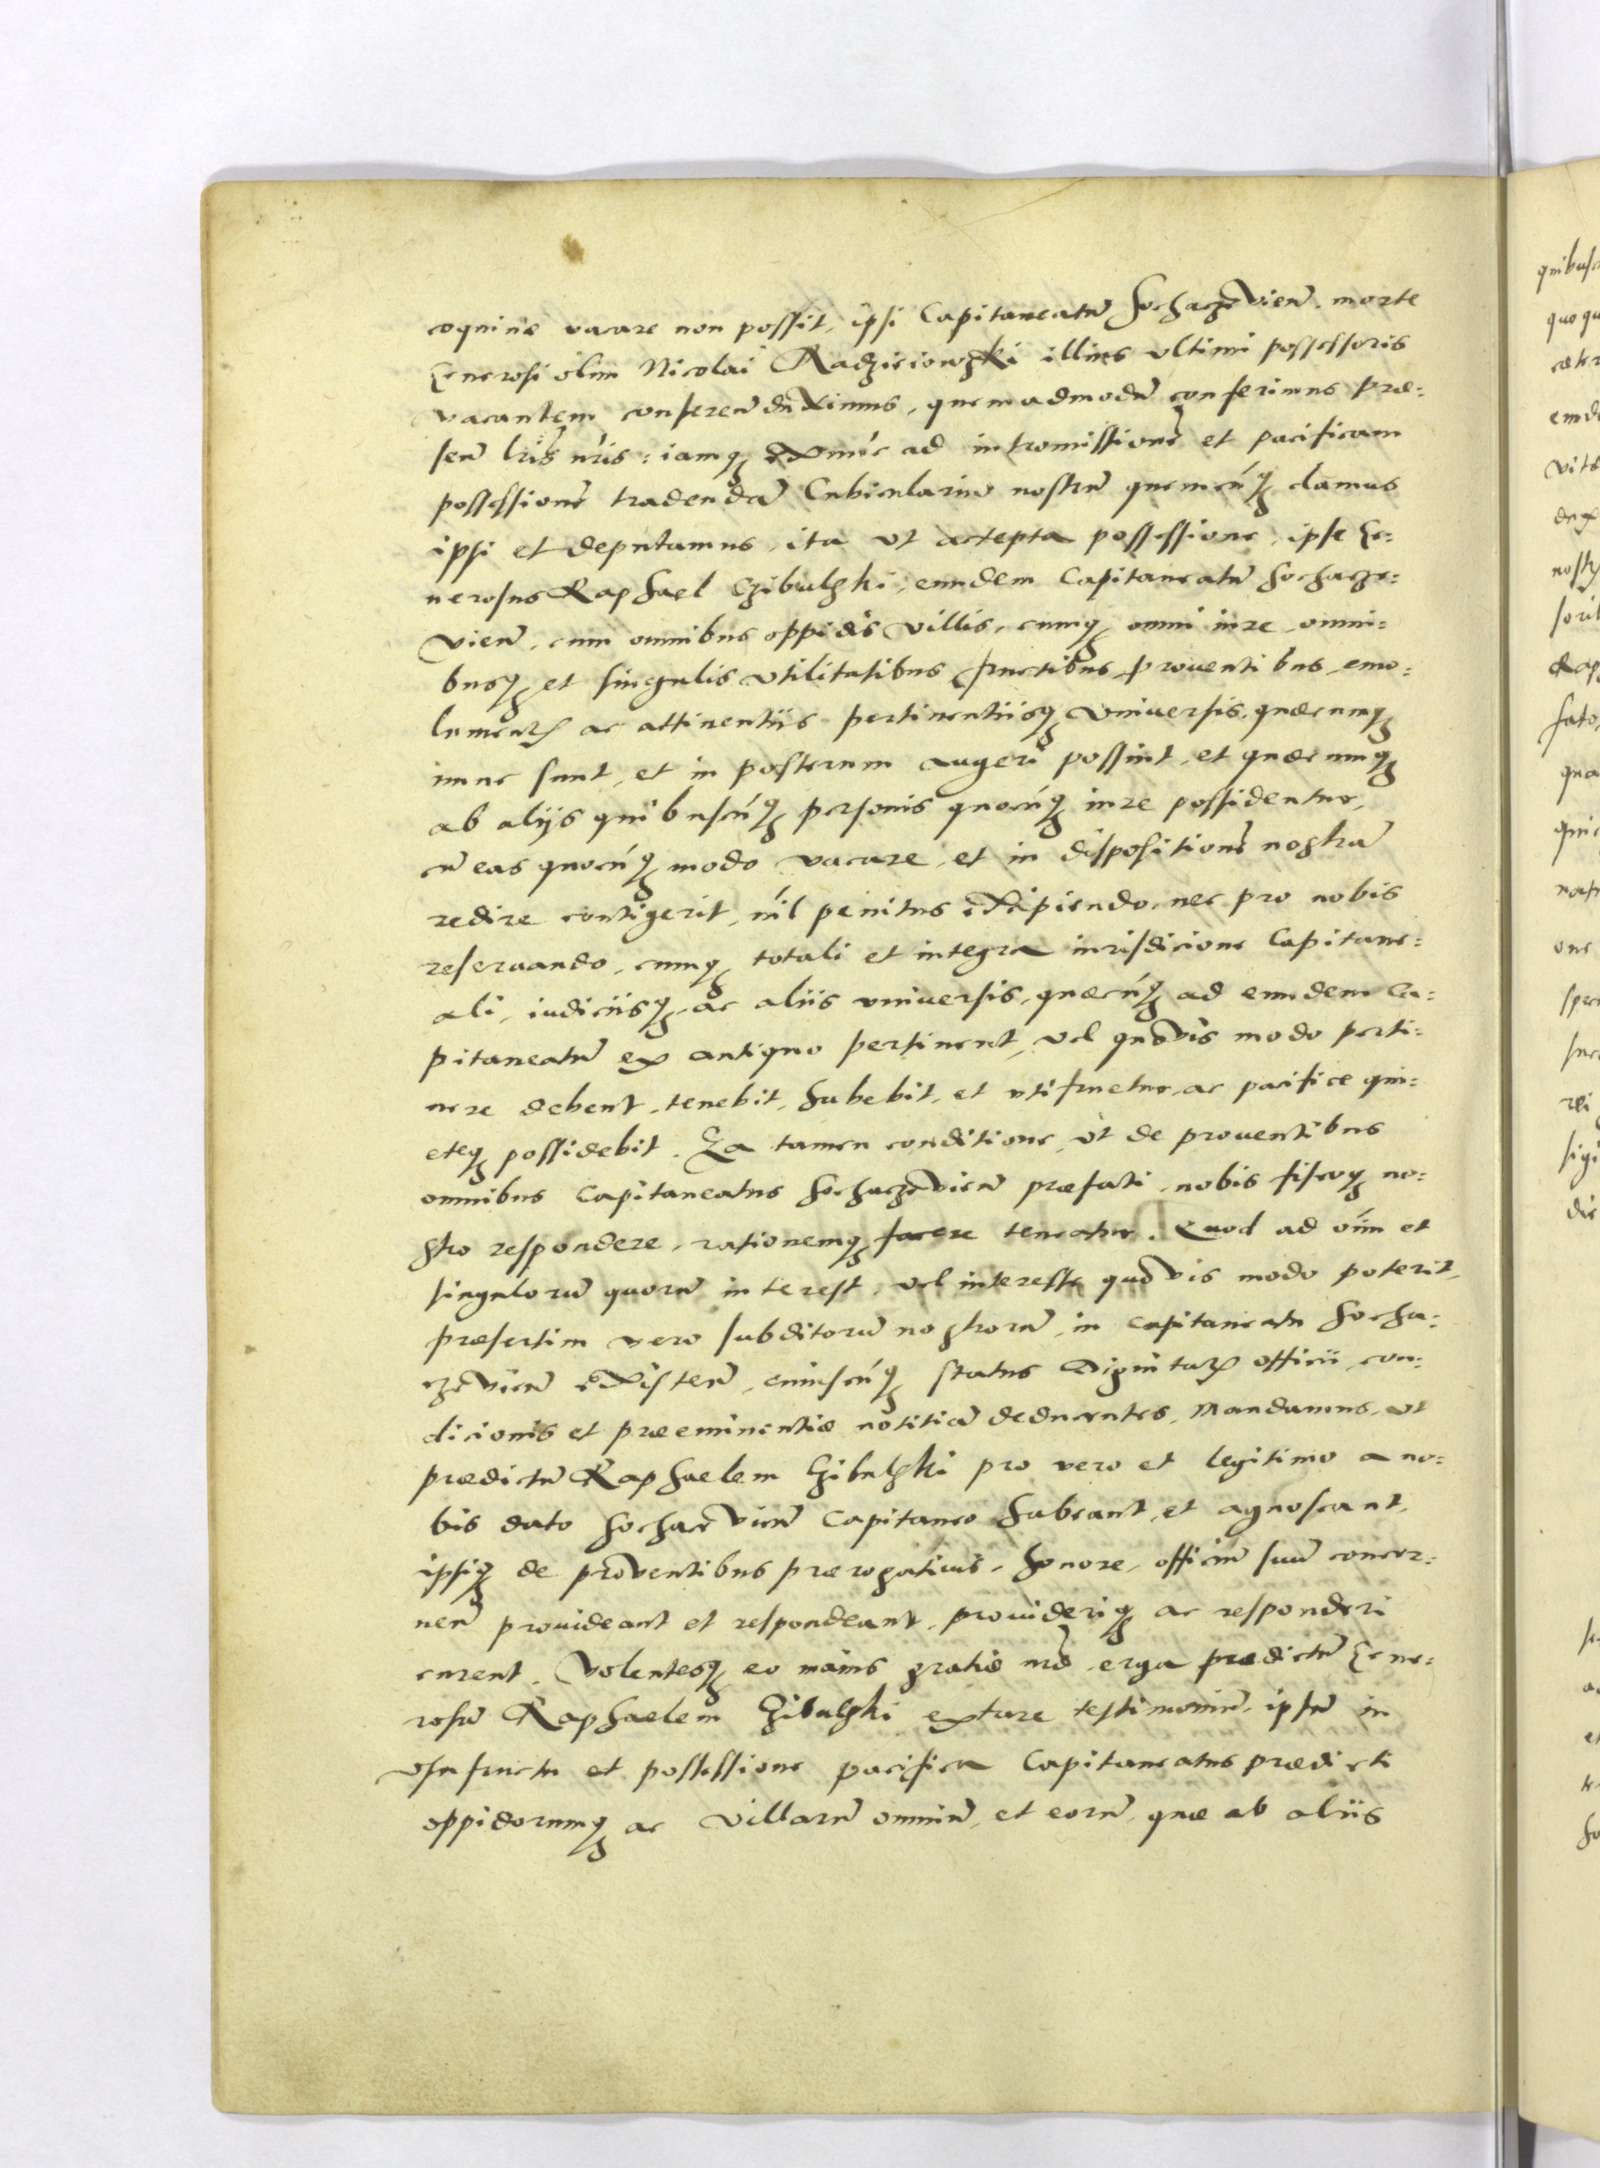 coquinæ vacare non possit, ipsi Capitaneatū Sochaczevien̄. morte
Generosi olim Nicolai Radzieiowski illius ultimi possessoris
vacantem conferen̄ duximus, quemadmodū conferimus præ:
sen̄ lr̄is nr̄is: iamq3 ex nūc ad intromissionē et pacificam
possessionē tradendā Cubiculariū nostrū quemcūq3 damus
ipsi et deputamus, ita ut accepta possessione, ipse Ge:
nerosus Raphael Czibulski, eundem Capitaneatū Sochacze:
vien̄, cum omnibus oppidis villis, cumq3 omni iure, omni:
busq3 et singulis utilitatibus fructibus proventibus emo:
lument. ac attinentiis pertinentiisq3 universis, quæcunq3
nunc sunt, et in posterum augeri possint, et quæcunq3
ab aliis quibuscūq3 personis quocūq3 iure possidentur,
cū eas quocūq3 modo vacare, et in dispositionē nostrā
redire contigerit, nīl penitus excipiendo, nec pro nobis
reservando, cumq3 totali et integra iurisdicione Capitane:
ali, iudiciisq3 ac aliis universis, quæcūq3 ad eundem Ca:
pitaneatū ex antiquo pertinent, vel quovis modo perti:
nere debent, tenebit, habebit, et utifruetur, ac pacifice qui:
eteq3 possidebit. Ea tamen conditione, ut de proventibus
omnibus Capitaneatus Sochaczevien̄ præfati, nobis fiscoq3 no:
stro respondere, rationemq3 facere teneatur. Quod ad oīm et
singulorū quorū interest, vel interesse quovis modo poterit,
præsertim vero subditorū nostrorū, in Capitaneatu Socha:
czevien̄ existen̄, cuiuscūq3 status dignitatis officii con:
dicionis et præeminentiæ notitiā deducentes, Mandamus, ut
prædictū Raphaelem Czibulski pro vero et legitimo a no:
bis dato Sochaczevien̄ Capitaneo habeant, et agnoscant,
ipsiq3 de proventibus prærogativis, honore, officiū suū concer:
nen̄ provideant et respondeant, provideriq3 ac responderi
curent. Volentesq3 eo maius gratiæ nr̄æ erga prædictū Gene:
rosū Raphaelem Czibulski extare testimoniū, ipsū in
usufructu et possessione pacifica Capitaneatus prædicti
oppidorumq3 ac villarū omniū, et eorū, quæ ab aliis